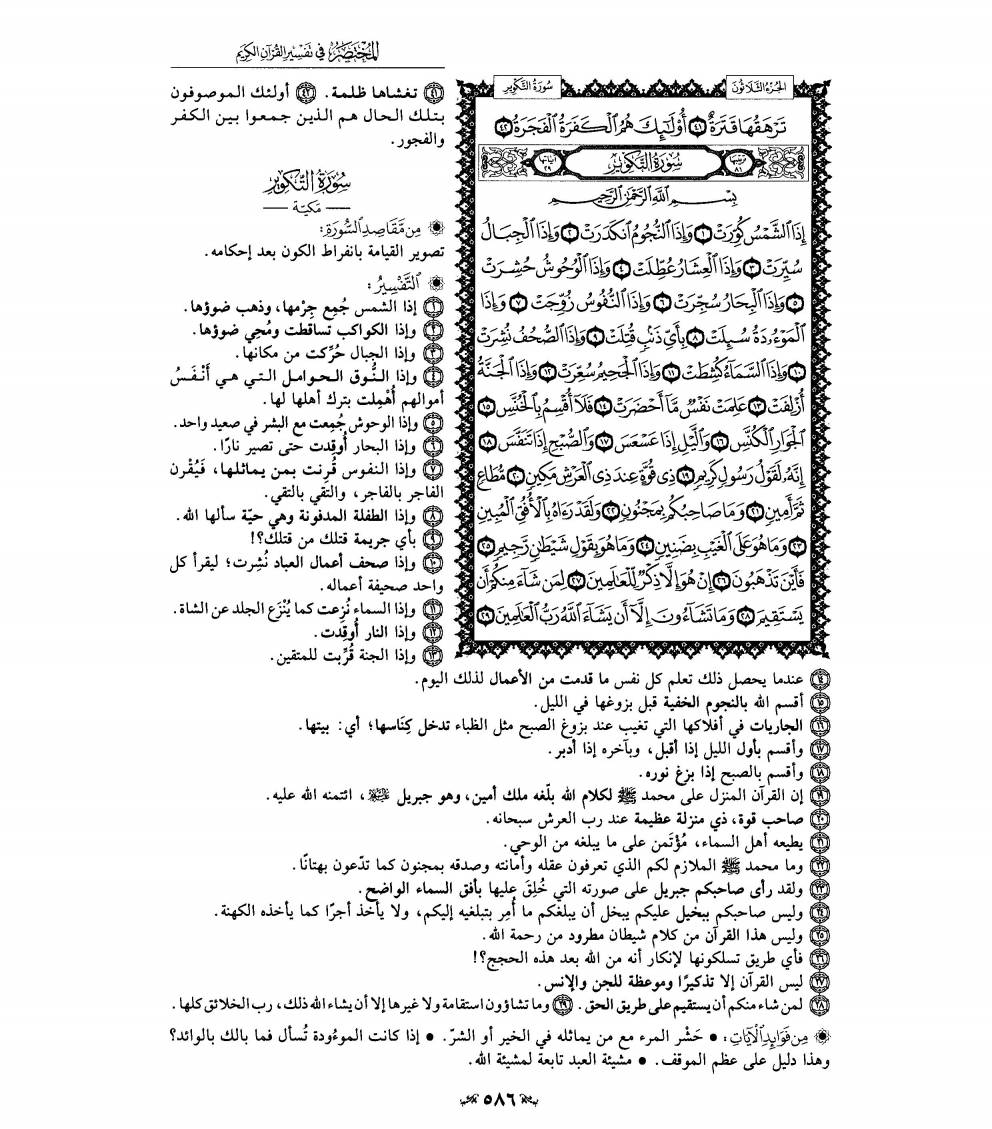 المختصر في تفسير القرآن الكريم
الجزء الثلاثون
سورة التكوير
تَرْهَقُهَا قَتَرَةٌ ٤١ أُوْلَٰٓئِكَ هُمُ ٱلْكَفَرَةُ ٱلْفَجَرَةُ ٤٢
ترتيبها ٨١
سُورَةُ التَّكْوِيرِ
آياتها ٢٩
بِسْمِ ٱللَّهِ ٱلرَّحْمَٰنِ ٱلرَّحِيمِ
إِذَا ٱلشَّمْسُ كُوِّرَتْ ١ وَإِذَا ٱلنُّجُومُ ٱنكَدَرَتْ ٢ وَإِذَا ٱلْجِبَالُ
سُيِّرَتْ ٣ وَإِذَا ٱلْعِشَارُ عُطِّلَتْ ٤ وَإِذَا ٱلْوُحُوشُ حُشِرَتْ
٥ وَإِذَا ٱلْبِحَارُ سُجِّرَتْ ٦ وَإِذَا ٱلنُّفُوسُ زُوِّجَتْ ٧ وَإِذَا
ٱلْمَوْءُۥدَةُ سُئِلَتْ ٨ بِأَىِّ ذَنۢبٍ قُتِلَتْ ٩ وَإِذَا ٱلصُّحُفُ نُشِرَتْ
١٠ وَإِذَا ٱلسَّمَآءُ كُشِطَتْ ١١ وَإِذَا ٱلْجَحِيمُ سُعِّرَتْ ١٢ وَإِذَا ٱلْجَنَّةُ
أُزْلِفَتْ ١٣ عَلِمَتْ نَفْسٌ مَّآ أَحْضَرَتْ ١٤ فَلَآ أُقْسِمُ بِٱلْخُنَّسِ ١٥
ٱلْجَوَارِ ٱلْكُنَّسِ ١٦ وَٱلَّيْلِ إِذَا عَسْعَسَ ١٧ وَٱلصُّبْحِ إِذَا تَنَفَّسَ ١٨
إِنَّهُۥ لَقَوْلُ رَسُولٍ كَرِيمٍ ١٩ ذِى قُوَّةٍ عِندَ ذِى ٱلْعَرْشِ مَكِينٍ ٢٠ مُّطَاعٍ
ثَمَّ أَمِينٍ ٢١ وَمَا صَاحِبُكُم بِمَجْنُونٍ ٢٢ وَلَقَدْ رَءَاهُ بِٱلْأُفُقِ ٱلْمُبِينِ
٢٣ وَمَا هُوَ عَلَى ٱلْغَيْبِ بِضَنِينٍ ٢٤ وَمَا هُوَ بِقَوْلِ شَيْطَٰنٍ رَّجِيمٍ ٢٥
فَأَيْنَ تَذْهَبُونَ ٢٦ إِنْ هُوَ إِلَّا ذِكْرٌ لِّلْعَٰلَمِينَ ٢٧ لِمَن شَآءَ مِنكُمْ أَن
يَسْتَقِيمَ ٢٨ وَمَا تَشَآءُونَ إِلَّآ أَن يَشَآءَ ٱللَّهُ رَبُّ ٱلْعَٰلَمِينَ ٢٩
٤١ تغشاها ظلمة. ٤٢ أولئك الموصوفون
بتلك الحال هم الذين جمعوا بين الكفر
والفجور.
سُورَةُ التَّكْوِيرِ
مَكيّة
مِن مَّقَاصِدِ السُّورَةِ:
تصوير القيامة بانفراط الكون بعد إحكامه.
التَّفْسِيرُ:
١ إذا الشمس جُمِع جِرْمها، وذهب ضوؤها.
٢ وإذا الكواكب تساقطت ومُحِي ضوؤها.
٣ وإذا الجبال حُرِّكت من مكانها.
٤ وإذا النُّوق الحوامل التي هي أَنْفَسُ
أموالهم أُهْمِلت بترك أهلها لها.
٥ وإذا الوحوش جُمِعت مع البشر في صعيد واحد.
٦ وإذا البحار أُوقِدت حتى تصير نارًا.
٧ وإذا النفوس قُرِنت بمن يماثلها، فَيُقْرن
الفاجر بالفاجر، والتقي بالتقي.
٨ وإذا الطفلة المدفونة وهي حيّة سألها الله.
٩ بأي جريمة قتلك من قتلك؟!
١٠ وإذا صحف أعمال العباد نُشِرت؛ ليقرأ كل
واحد صحيفة أعماله.
١١ وإذا السماء نُزِعت كما يُنْزَع الجلد عن الشاة.
١٢ وإذا النار أُوقِدت.
١٣ وإذا الجنة قُرِّبت للمتقين.
١٤ عندما يحصل ذلك تعلم كل نفس ما قدمت من الأعمال لذلك اليوم.
١٥ أقسم الله بالنجوم الخفية قبل بزوغها في الليل.
١٦ الجاريات في أفلاكها التي تغيب عند بزوغ الصبح مثل الظباء تدخل كِنَاسها؛ أي: بيتها.
١٧ وأقسم بأول الليل إذا أقبل، وبآخره إذا أدبر.
١٨ وأقسم بالصبح إذا بزغ نوره.
١٩ إن القرآن المنزل على محمد ﷺ لكلام الله بلّغه ملك أمين، وهو جبريل عليه السلام، ائتمنه الله عليه.
٢٠ صاحب قوة، ذي منزلة عظيمة عند رب العرش سبحانه.
٢١ يطيعه أهل السماء، مُؤْتَمن على ما يبلغه من الوحي.
٢٢ وما محمد ﷺ الملازم لكم الذي تعرفون عقله وأمانته وصدقه بمجنون كما تدّعون بهتانًا.
٢٣ ولقد رأى صاحبكم جبريل على صورته التي خُلِقَ عليها بأفق السماء الواضح.
٢٤ وليس صاحبكم ببخيل عليكم يبخل أن يبلغكم ما أُمِر بتبلغيه إليكم، ولا يأخذ أجرًا كما يأخذه الكهنة.
٢٥ وليس هذا القرآن من كلام شيطان مطرود من رحمة الله.
٢٦ فأي طريق تسلكونها لإنكار أنه من الله بعد هذه الحجج؟!
٢٧ ليس القرآن إلا تذكيرًا وموعظة للجن والإنس.
٢٨ لمن شاء منكم أن يستقيم على طريق الحق. ٢٩ وما تشاؤون استقامة ولا غيرها إلا أن يشاء الله ذلك، رب الخلائق كلها.
مِن فَوَائِدِ الْآيَاتِ: • حَشْر المرء مع من يماثله في الخير أو الشرّ. • إذا كانت الموءُودة تُسأل فما بالك بالوائد؟
وهذا دليل على عظم الموقف. • مشيئة العبد تابعة لمشيئة الله.
٥٨٦